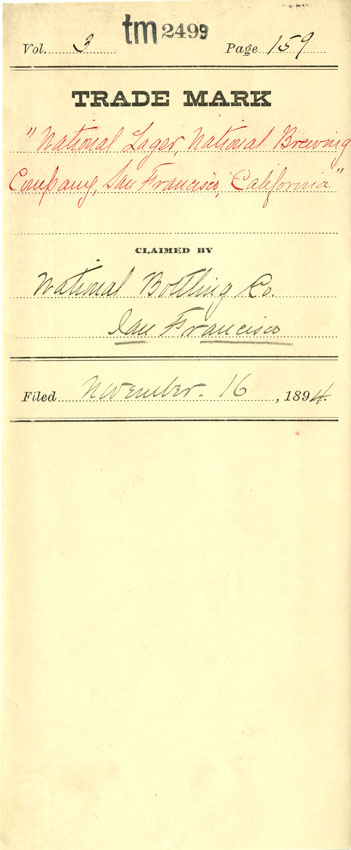 Vol. 3 tm 2499 Page 159
TRADE MARK
"National Lager, National Brewing
Company, San Francisco, California"
CLAIMED BY
National Bottling Co.
San Francisco
Filed November. 16, 1894.